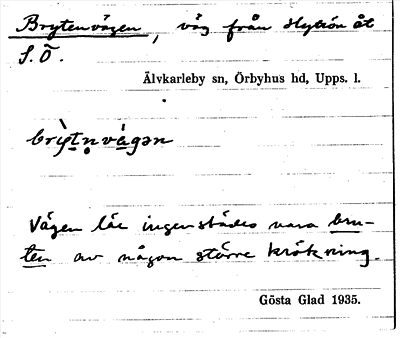 Brytenvägen, väg från Hyttön åt
S.Ö.
Älvkarleby sn, Örbyhus hd, Upps. l.
brỳtn̥vägən
Vägen lär ingenstädes vara bru-
ten av någon större krökning.
Gösta Glad 1935.